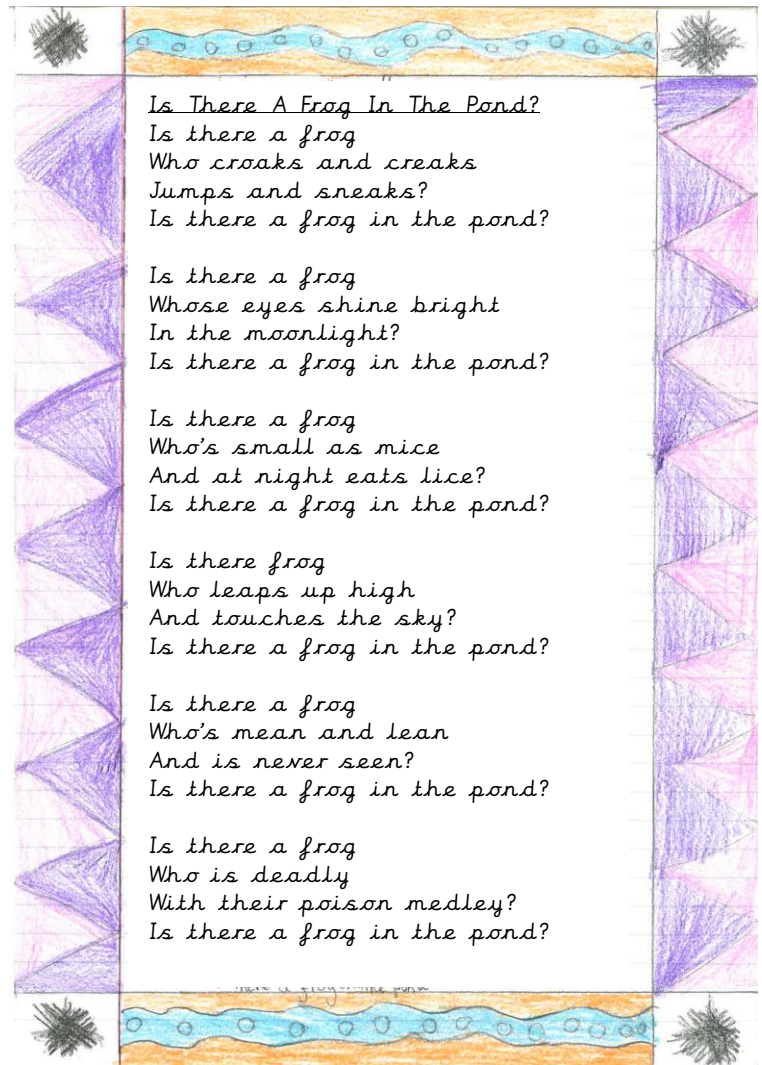 Is There A Frog In The Pond?
Is there a frog
Who croaks and creaks
Jumps and sneaks?
Is there a frog in the pond?

Is there a frog
Whose eyes shine bright
In the moonlight?
Is there a frog in the pond?

Is there a frog
Who's small as mice
And at night eats lice?
Is there a frog in the pond?

Is there frog
Who leaps up high
And touches the sky?
Is there a frog in the pond?

Is there a frog
Who's mean and lean
And is never seen?
Is there a frog in the pond?

Is there a frog
Who is deadly
With their poison medley?
Is there a frog in the pond?